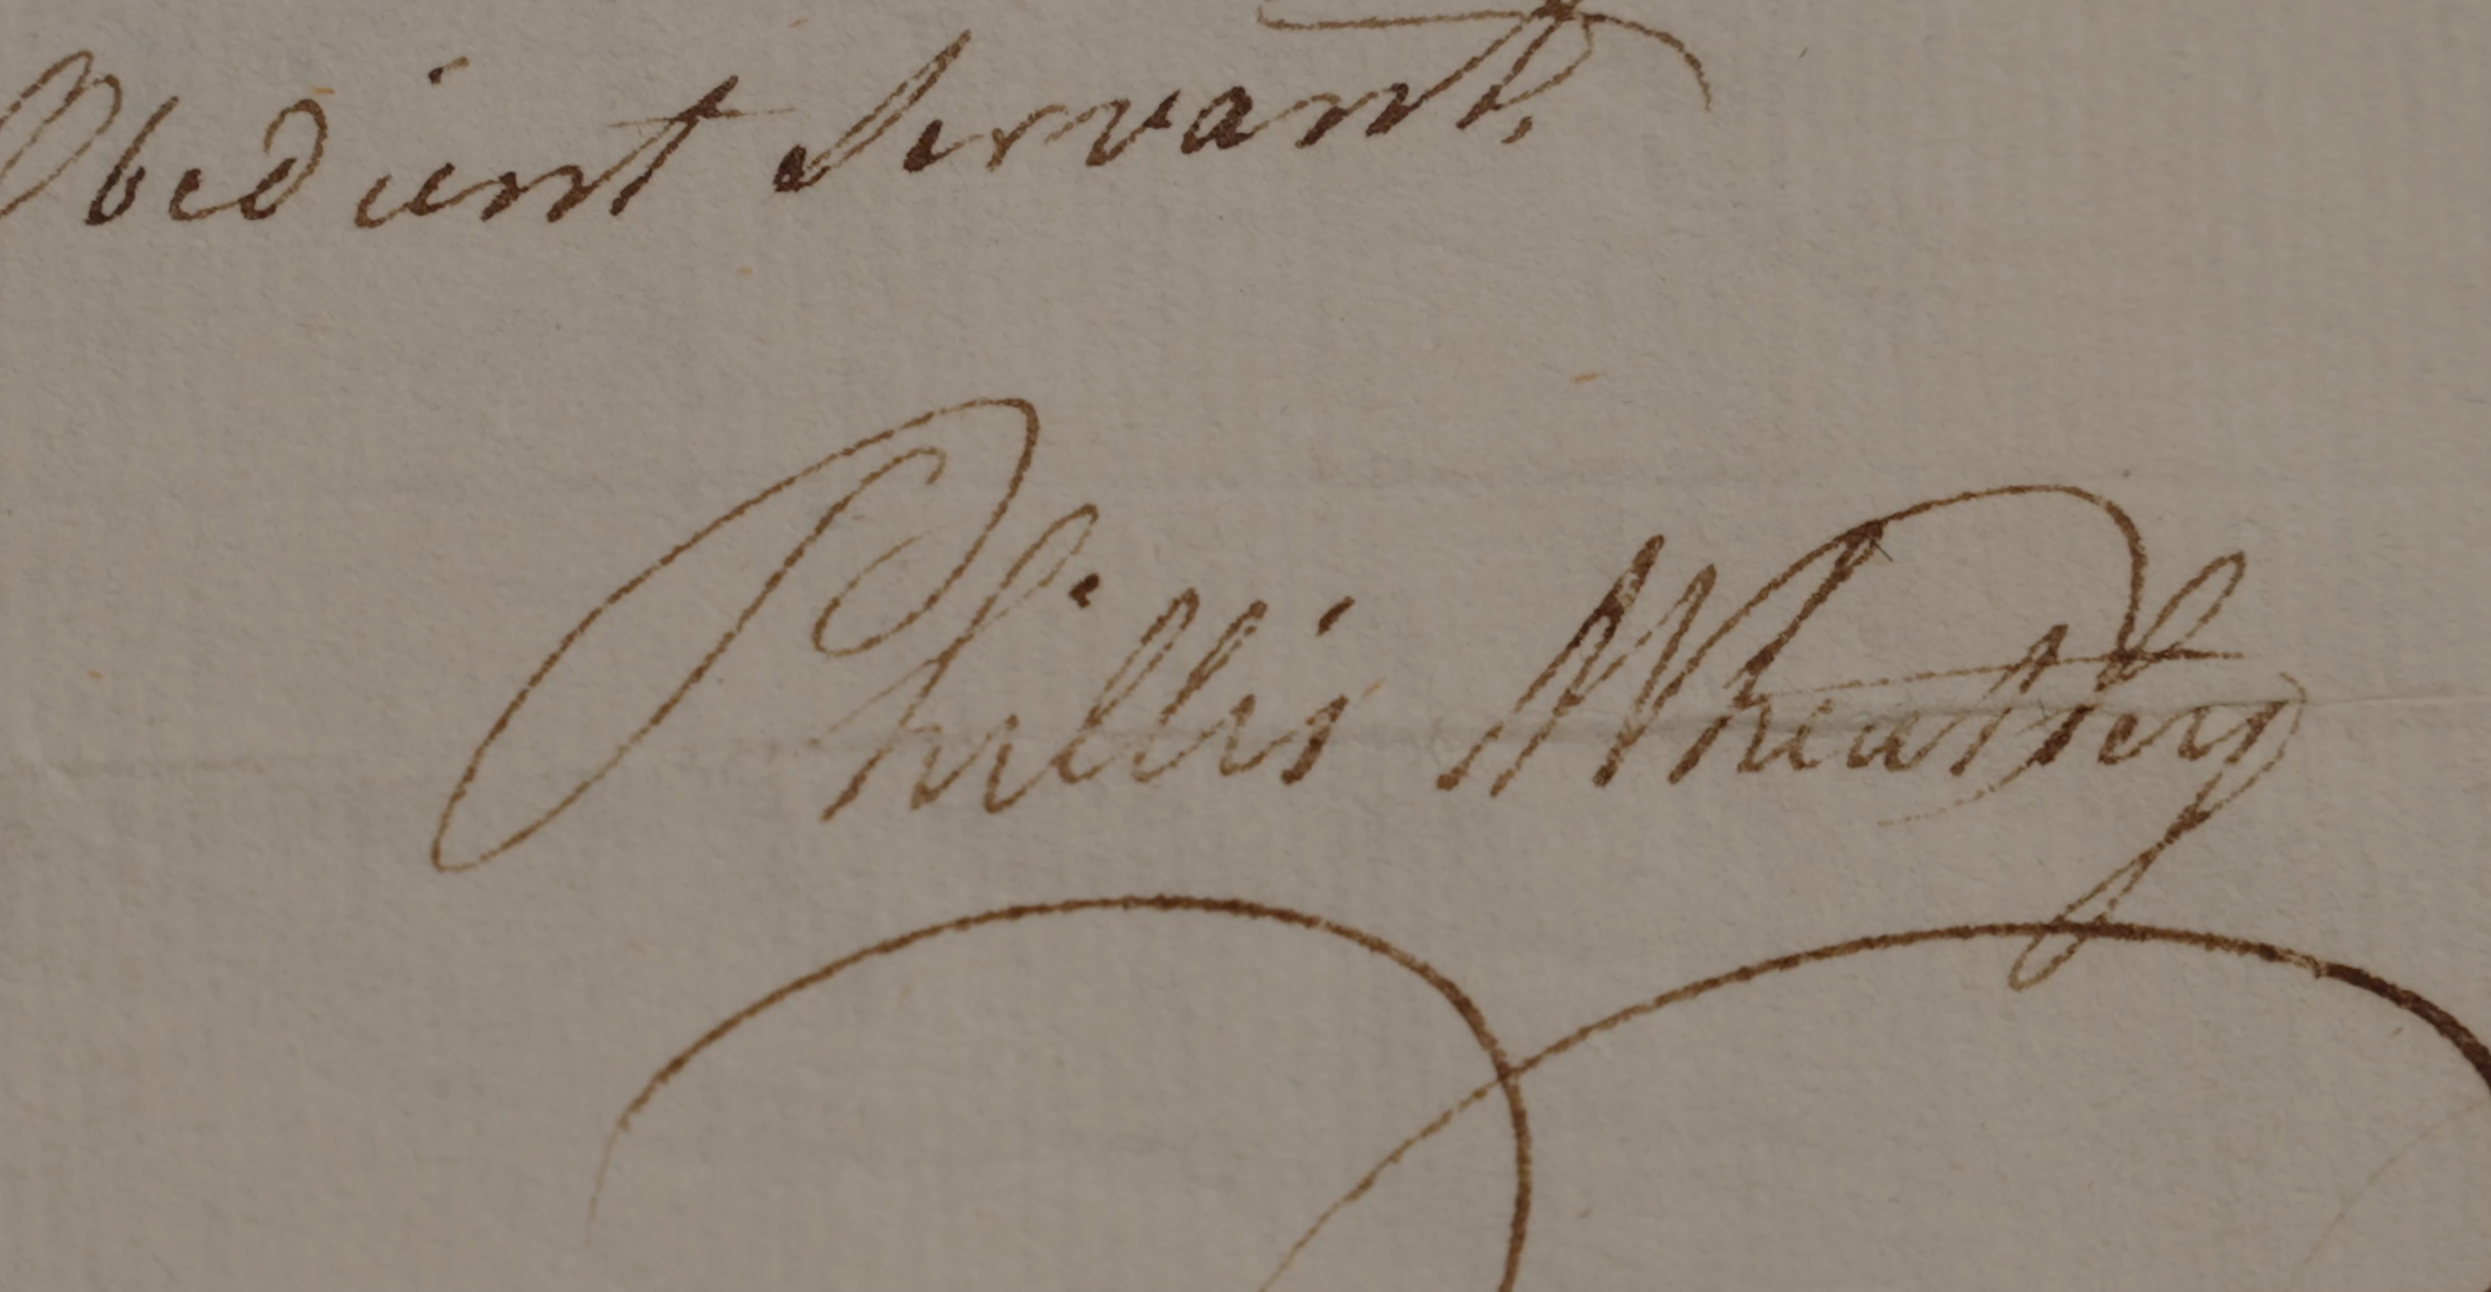 Obedient Servant,
Phillis Wheatley